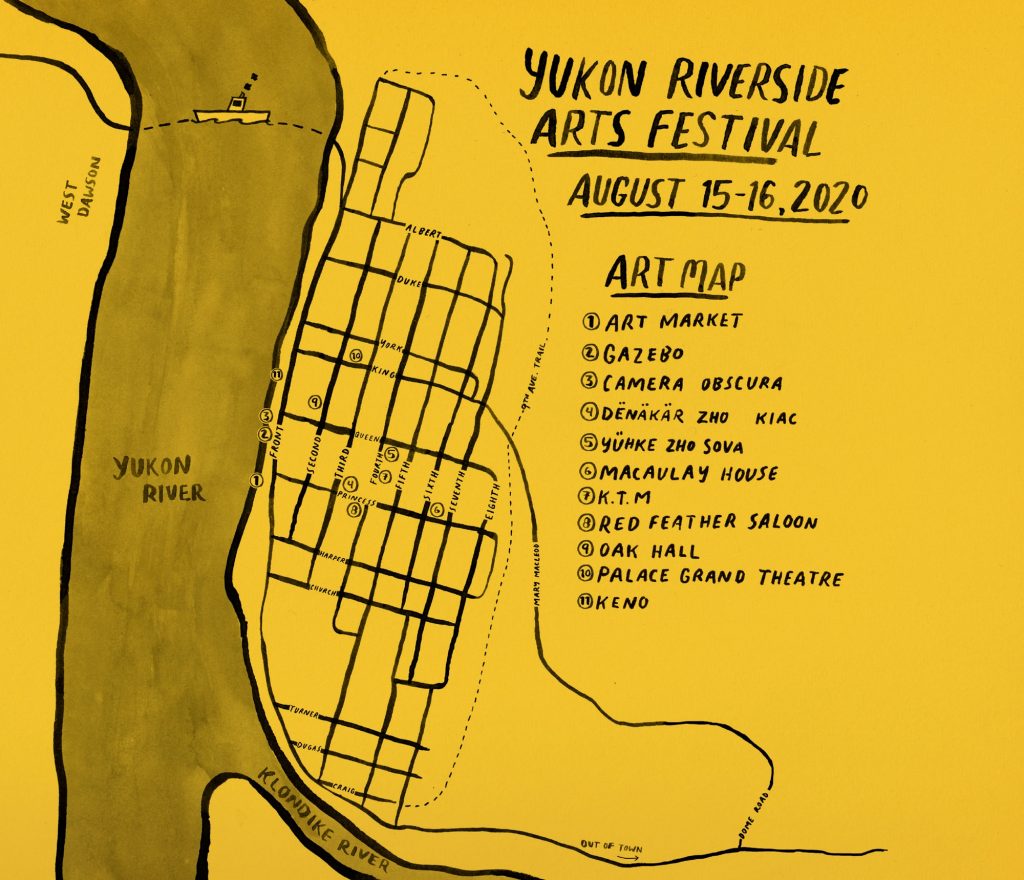 YUKON RIVERSIDE
ARTS FESTIVAL
AUGUST 15-16, 2020
ART MAP
① ART MARKET
② GAZEBO
③ CAMERA OBSCURA
④ DËNÄKÄR ZHO KIAC
⑤ YÜHKE ZHO SOVA
⑥ MACAULAY HOUSE
⑦ K.T.M
⑧ RED FEATHER SALOON
⑨ OAK HALL
⑩ PALACE GRAND THEATRE
⑪ KENO
WEST
DAWSON
YUKON
RIVER
KLONDIKE RIVER
ALBERT
DUKE
YORK
⑩
KING
⑪
⑨
③
②
QUEEN
FRONT
SECOND
THIRD
FOURTH
FIFTH
SIXTH
SEVENTH
EIGHTH
⑤
⑦
④
①
PRINCESS
⑧
⑥
HARPER
CHURCH
TURNER
DUGAS
CRAIG
9TH AVE. TRAIL
MARY MACLEOD
DOME ROAD
OUT OF TOWN